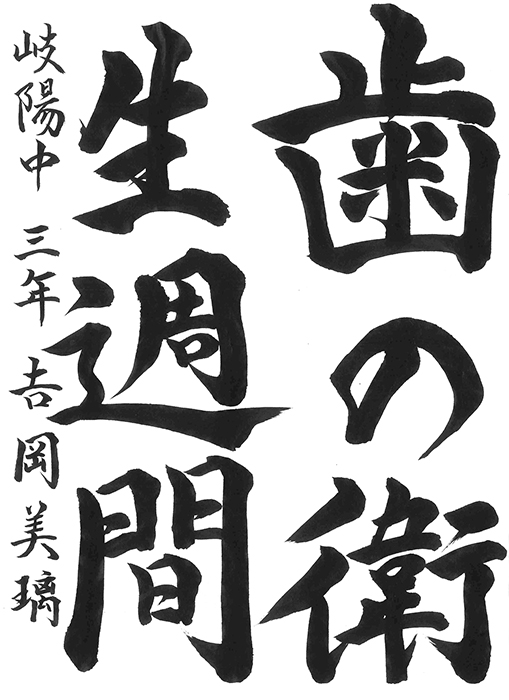 歯の衛
生週間
岐陽中 三年 𠮷岡美璃